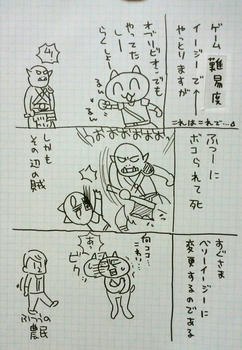 ゲーム難易度
イージーで
やっとりますが
これはこれで…
オブリビオンでも
やってた
しー
らくしょー
るん
るん
ふつーに
ボコられて死
おおおおおお
しかも
その辺の賊
すぐさま
ベリーイージーに
変更するのである
何ココ
こわい…
あっ
ビクッ
ふつーの
農民